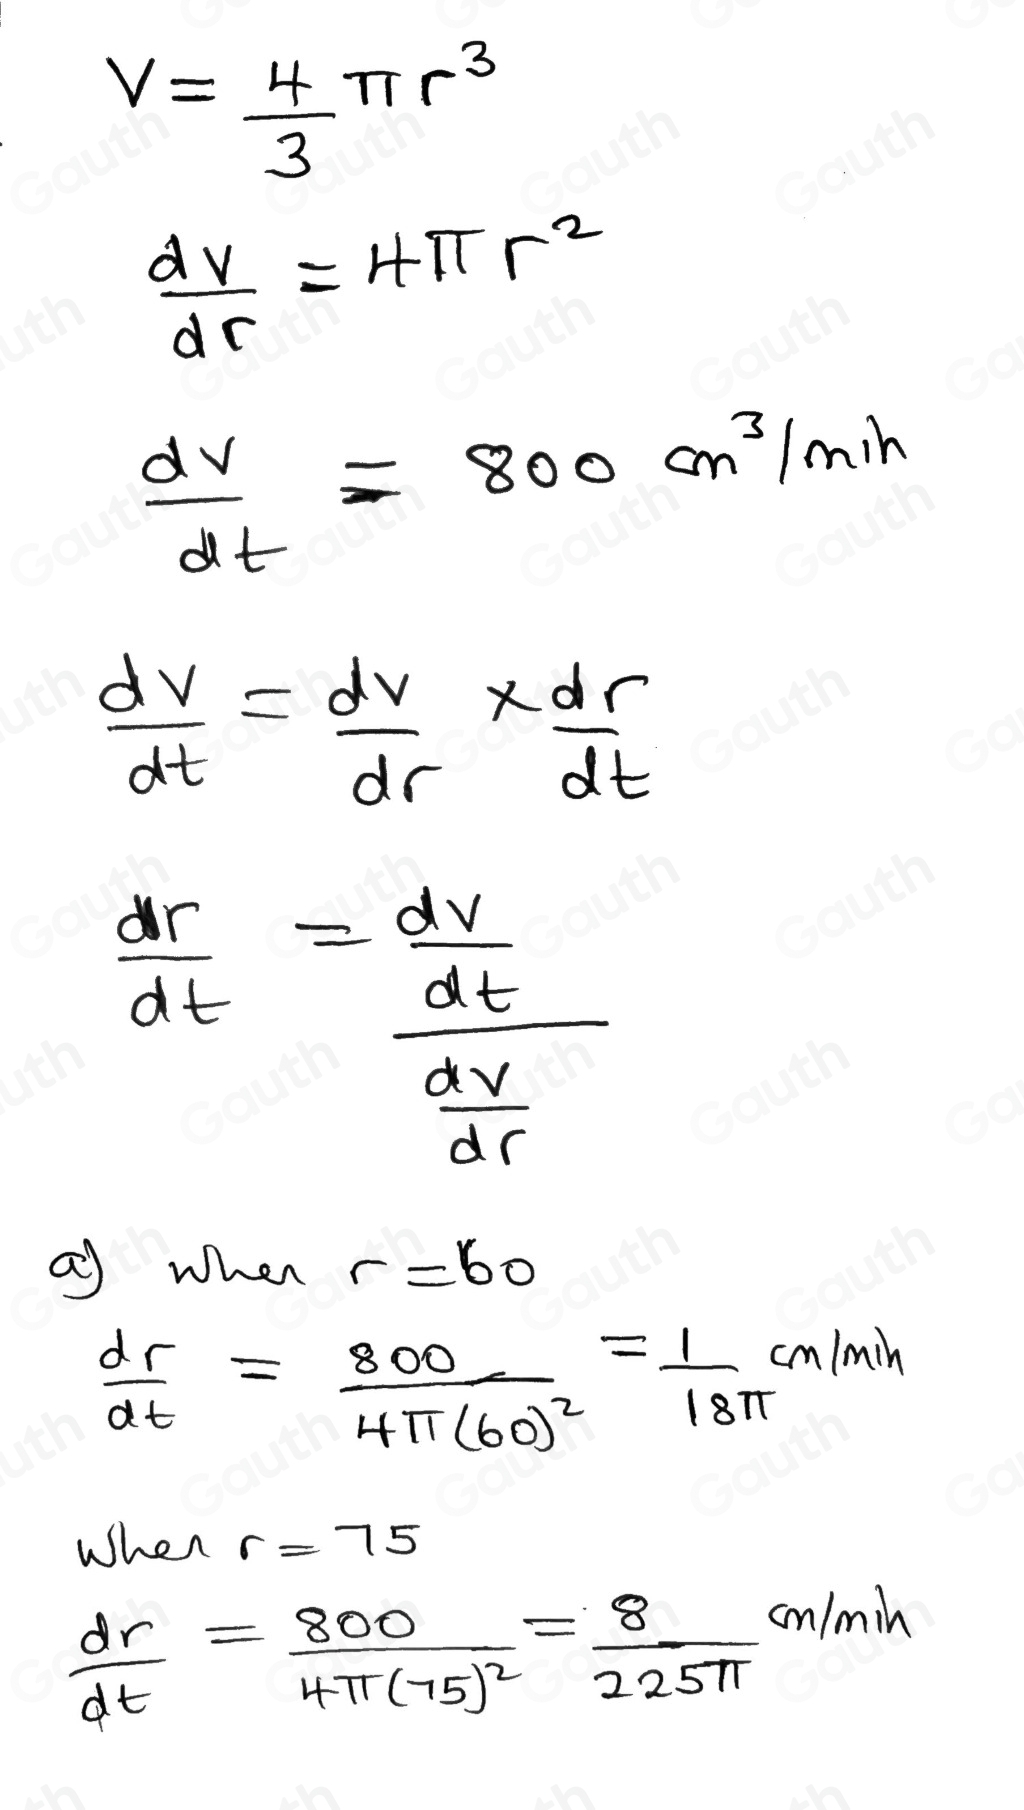 V = 4/3 π r³
dv/dr = 4π r²
dv/dt = 800 cm³/min
dv/dt = dv/dr × dr/dt
dr/dt = dv/dt / dv/dr
a) when r = 60
dr/dt = 800/4π(60)² = 1/18π cm/min
when r = 75
dr/dt = 800/4π(75)² = 8/225π cm/min
Gauth